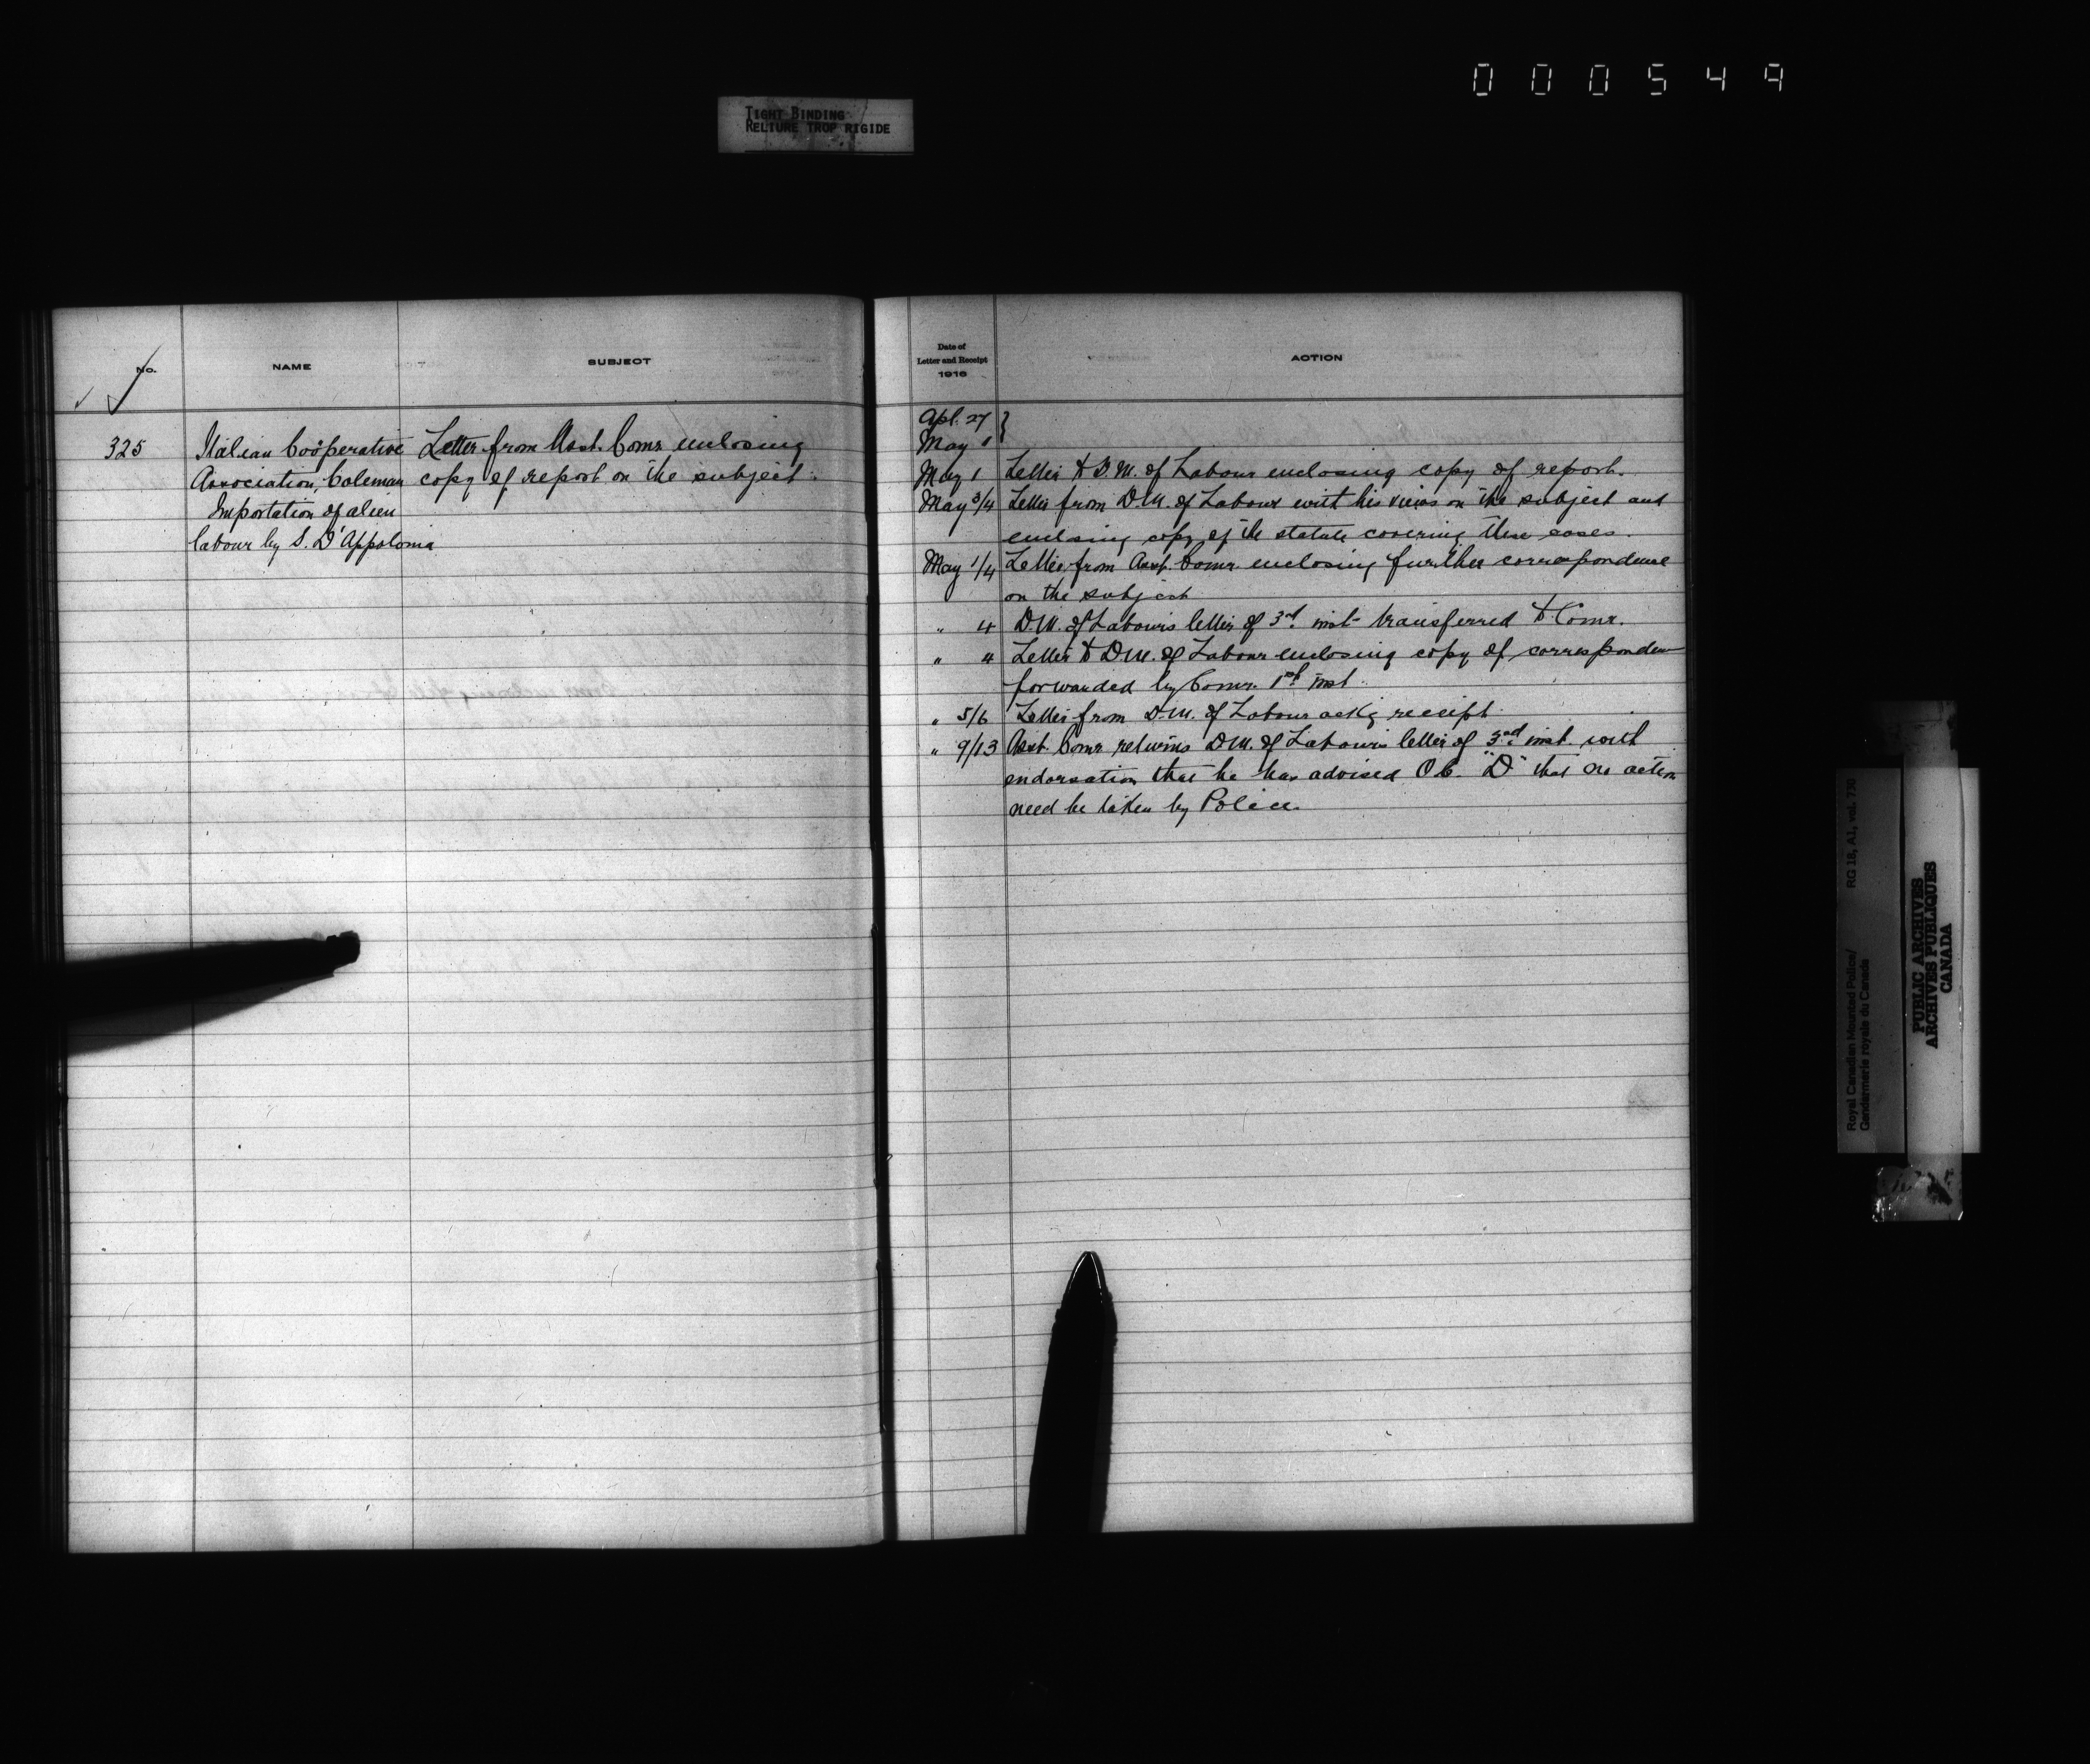 000549
TIGHT BINDING
RELIURE TROP RIGIDE
No.
NAME
SUBJECT
325
Italian Coöperative
Association, Coleman
Importation of alien
labour by S. D'Appolonia
Letter from Asst. Comr. enclosing
copy of report on the subject.
Date of
Letter and Receipt
1916
ACTION
Apl. 27 }
May 1
May 1 Letter to D.M. of Labour enclosing copy of report.
May 3/4 Letter from D.M. of Labour with his views on the subject and
enclosing copy of the statute covering these cases.
May 1/4 Letter from Asst. Comr. enclosing further correspondence
on the subject
" 4 D.M. of Labour's letter of 3rd. inst- transferred to Comr.
" 4 Letter to D.M. of Labour enclosing copy of corresponden
forwarded by Comr. 1st inst.
" 5/6 Letter from D.M. of Labour ackg receipt.
" 9/13 Asst. Comr. returns D.M. of Labour's letter of 3rd inst. with
endorsation that he has advised O.C. "D" that no action
need be taken by Police.
Royal Canadian Mounted Police/ RG 18, A1, vol. 730
Gendarmerie royale du Canada
PUBLIC ARCHIVES
ARCHIVES PUBLIQUES
CANADA